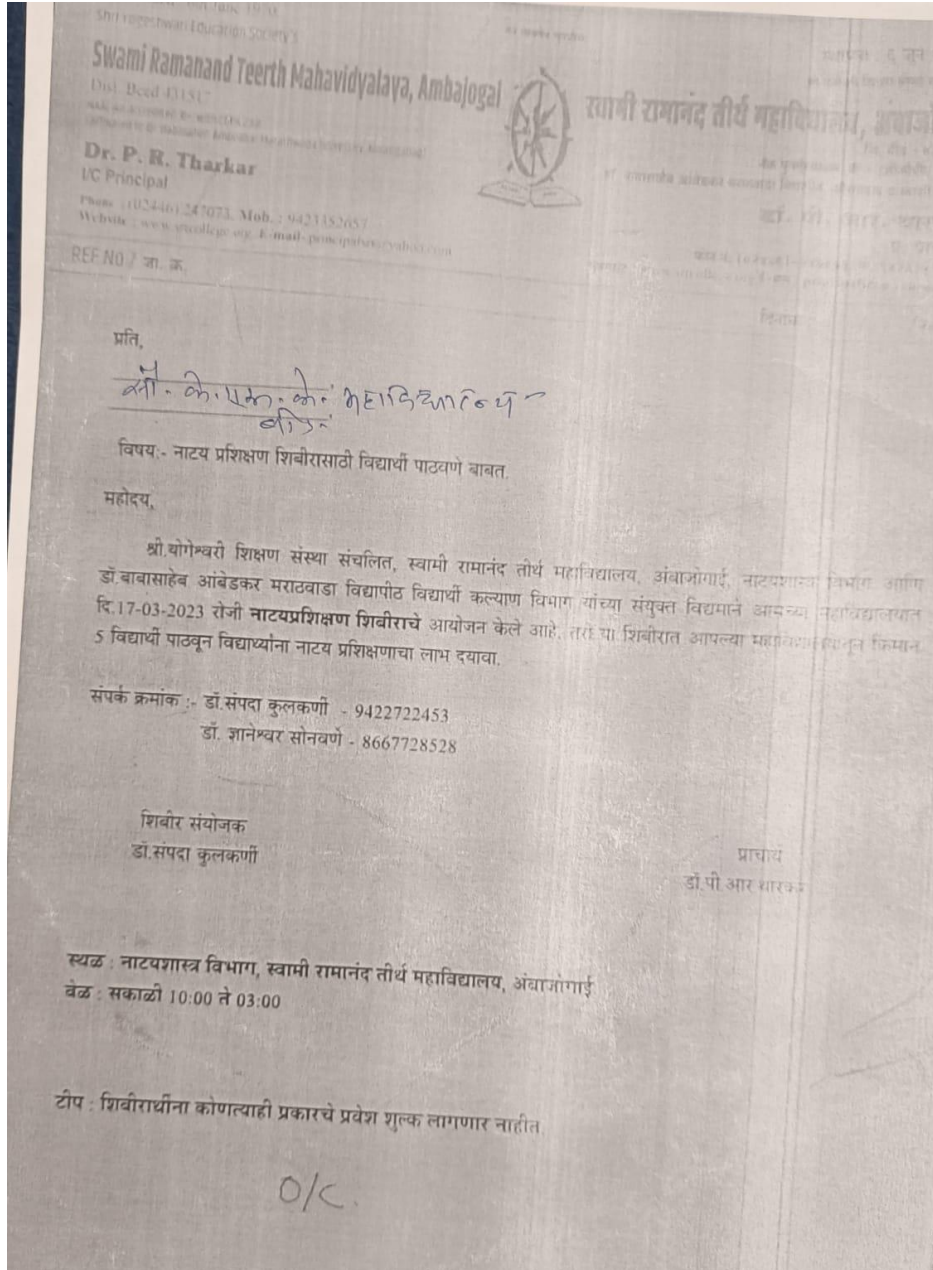 Shri Yogeshwari Education Society's
Swami Ramanand Teerth Mahavidyalaya, Ambajogai
स्वामी रामानंद तीर्थ महाविद्यालय,
Dist. Beed
Dr. P. R. Tharkar
I/C Principal
Phone : (02446) 247073, Mob. : 9423352657
Website : E-mail-
REF.NO./ जा. क्र.
दिनांक
प्रति,
सौ. के. एस. के. महाविद्यालय
बीड
विषय:- नाटय प्रशिक्षण शिबीरासाठी विद्यार्थी पाठवणे बाबत.
महोदय,
श्री.योगेश्वरी शिक्षण संस्था संचलित, स्वामी रामानंद तीर्थ महाविद्यालय, अंबाजोगाई, नाटयशास्त्र विभाग आणि
डॉ.बाबासाहेब आंबेडकर मराठवाडा विद्यापीठ विद्यार्थी कल्याण विभाग यांच्या संयुक्त विद्यमाने आमच्या महाविद्यालयात
दि.17-03-2023 रोजी नाटयप्रशिक्षण शिबीराचे आयोजन केले आहे. तरी या शिबीरात आपल्या महाविद्यालयातून किमान
5 विद्यार्थी पाठवून विद्यार्थ्यांना नाटय प्रशिक्षणाचा लाभ दयावा.
संपर्क क्रमांक :- डॉ.संपदा कुलकर्णी - 9422722453
डॉ. ज्ञानेश्वर सोनवणे - 8667728528
शिबीर संयोजक
डॉ.संपदा कुलकर्णी
प्राचार्य
डॉ.पी आर थारकर
स्थळ : नाटयशास्त्र विभाग, स्वामी रामानंद तीर्थ महाविद्यालय, अंबाजोगाई
वेळ : सकाळी 10:00 ते 03:00
टीप : शिबीरार्थीना कोणत्याही प्रकारचे प्रवेश शुल्क लागणार नाहीत.
O/C.